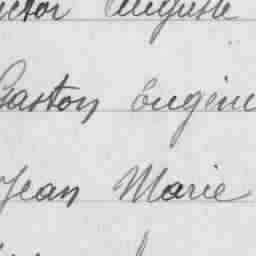 Auguste
Gaston Eugène
Jean Marie